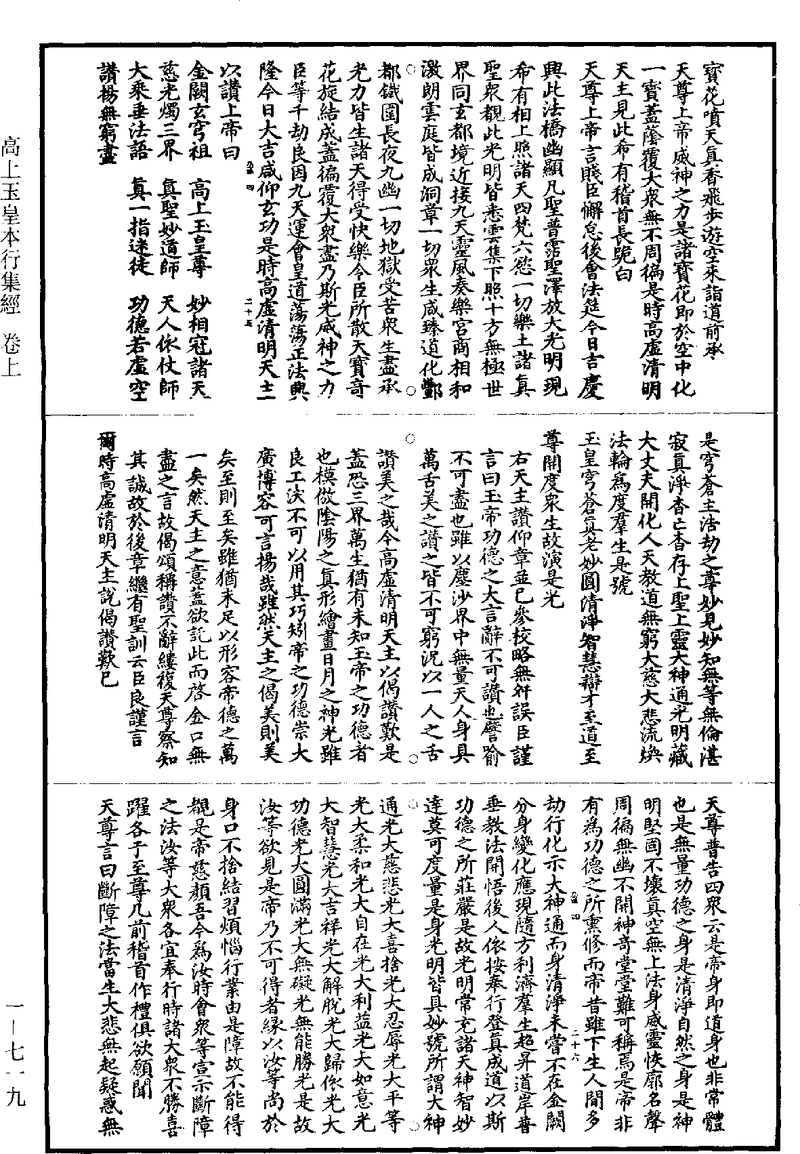 寶花噴天真香飛步遊空來詣道前承
天尊上帝威神之力是諸寶花即於空中化
一寶蓋蔭覆大衆無不周徧是時高虛清明
天主見此希有稽首長跪白
天尊上帝言賤臣懈怠後會法筵今日吉慶
興此法橋幽顯凡聖普霑聖澤放大光明現
希有相上照諸天四梵六慾一切樂土諸真
聖衆覩此光明皆悉雲集下照十方無極世
界同玄都境近接九天靈風奏樂宮商相和
激朗雲庭皆成洞章一切衆生咸臻道化酆
都鐵圍長夜九幽一切地獄受苦衆生盡承
光力皆生諸天得受快樂今臣所散天寶奇
花旋結成蓋徧覆大衆盡乃斯光威神之力
臣等千劫良因九天運會皇道蕩蕩正法興
隆今日大吉咸仰玄功是時高虛清明天主
以讚上帝曰
金闕玄穹祖　高上玉皇尊　妙相冠諸天
慈光燭三界　真聖妙道師　天人依仗師
大乘垂法語　真一指迷徒　功德若虛空
讚揚無窮盡
二十五
是穹蒼主浩劫之尊妙見妙知無等無倫湛
寂真淨杳亡杳存上聖上靈大神通光明藏
大丈夫開化人天教道無窮大慈大悲流煥
法輪為度羣生是號
玉皇穹蒼真老妙圓清淨智慧辯才至道至
尊開度衆生故演是光
右天主讚仰章並已參校略無舛誤臣謹
言曰玉帝功德之大言辭不可讚也譬喻
不可盡也雖以塵沙界中無量天人身具
萬舌美之讚之皆不可窮況以一人之舌
讚美之哉今高虛清明天主以偈讚歎是
蓋恐三界萬生猶有未知玉帝之功德者
也模倣陰陽之真形繪畫日月之神光雖
良工決不可以用其巧矧帝之功德崇大
廣博容可言揚哉雖然天主之偈美則美
矣至則至矣雖猶未足以形容帝德之萬
一矣然天主之意蓋欲託此而啓金口無
盡之言故偈頌稱讚不辭縷複天尊察知
其誠故於後章繼有聖訓云臣良謹言
爾時高虛清明天主說偈讚歎已
天尊普告四衆云是帝身即道身也非常體
也是無量功德之身是清淨自然之身是神
明堅固不壞真空無上法身威靈恢廓名聲
周徧無幽不開神奇堂堂難可稱焉是帝非
有為功德之所熏修而帝昔雖下生人間多
劫行化示大神通而身清淨未嘗不在金闕
二十六
分身變化應現隨方利濟羣生超昇道岸普
垂教法開悟後人依按奉行登真成道以斯
功德之所莊嚴是故光明常充諸天神智妙
達莫可度量是身光明皆具妙號所謂大神
通光大慈悲光大喜捨光大忍辱光大平等
光大柔和光大自在光大利益光大如意光
大智慧光大吉祥光大解脫光大歸依光大
功德光大圓滿光大無礙光無能勝光是故
汝等欲見是帝乃不可得者緣以汝等尚於
身口不捨結習煩惱行業由是障故不能得
覩是帝慈顏吾今為汝時會衆等宣示斷障
之法汝等大衆各宜奉行時諸大衆不勝喜
躍各于至尊几前稽首作禮俱欲願聞
天尊言曰斷障之法當生大悲無起疑惑無
高上玉皇本行集經　卷上
一—七一九